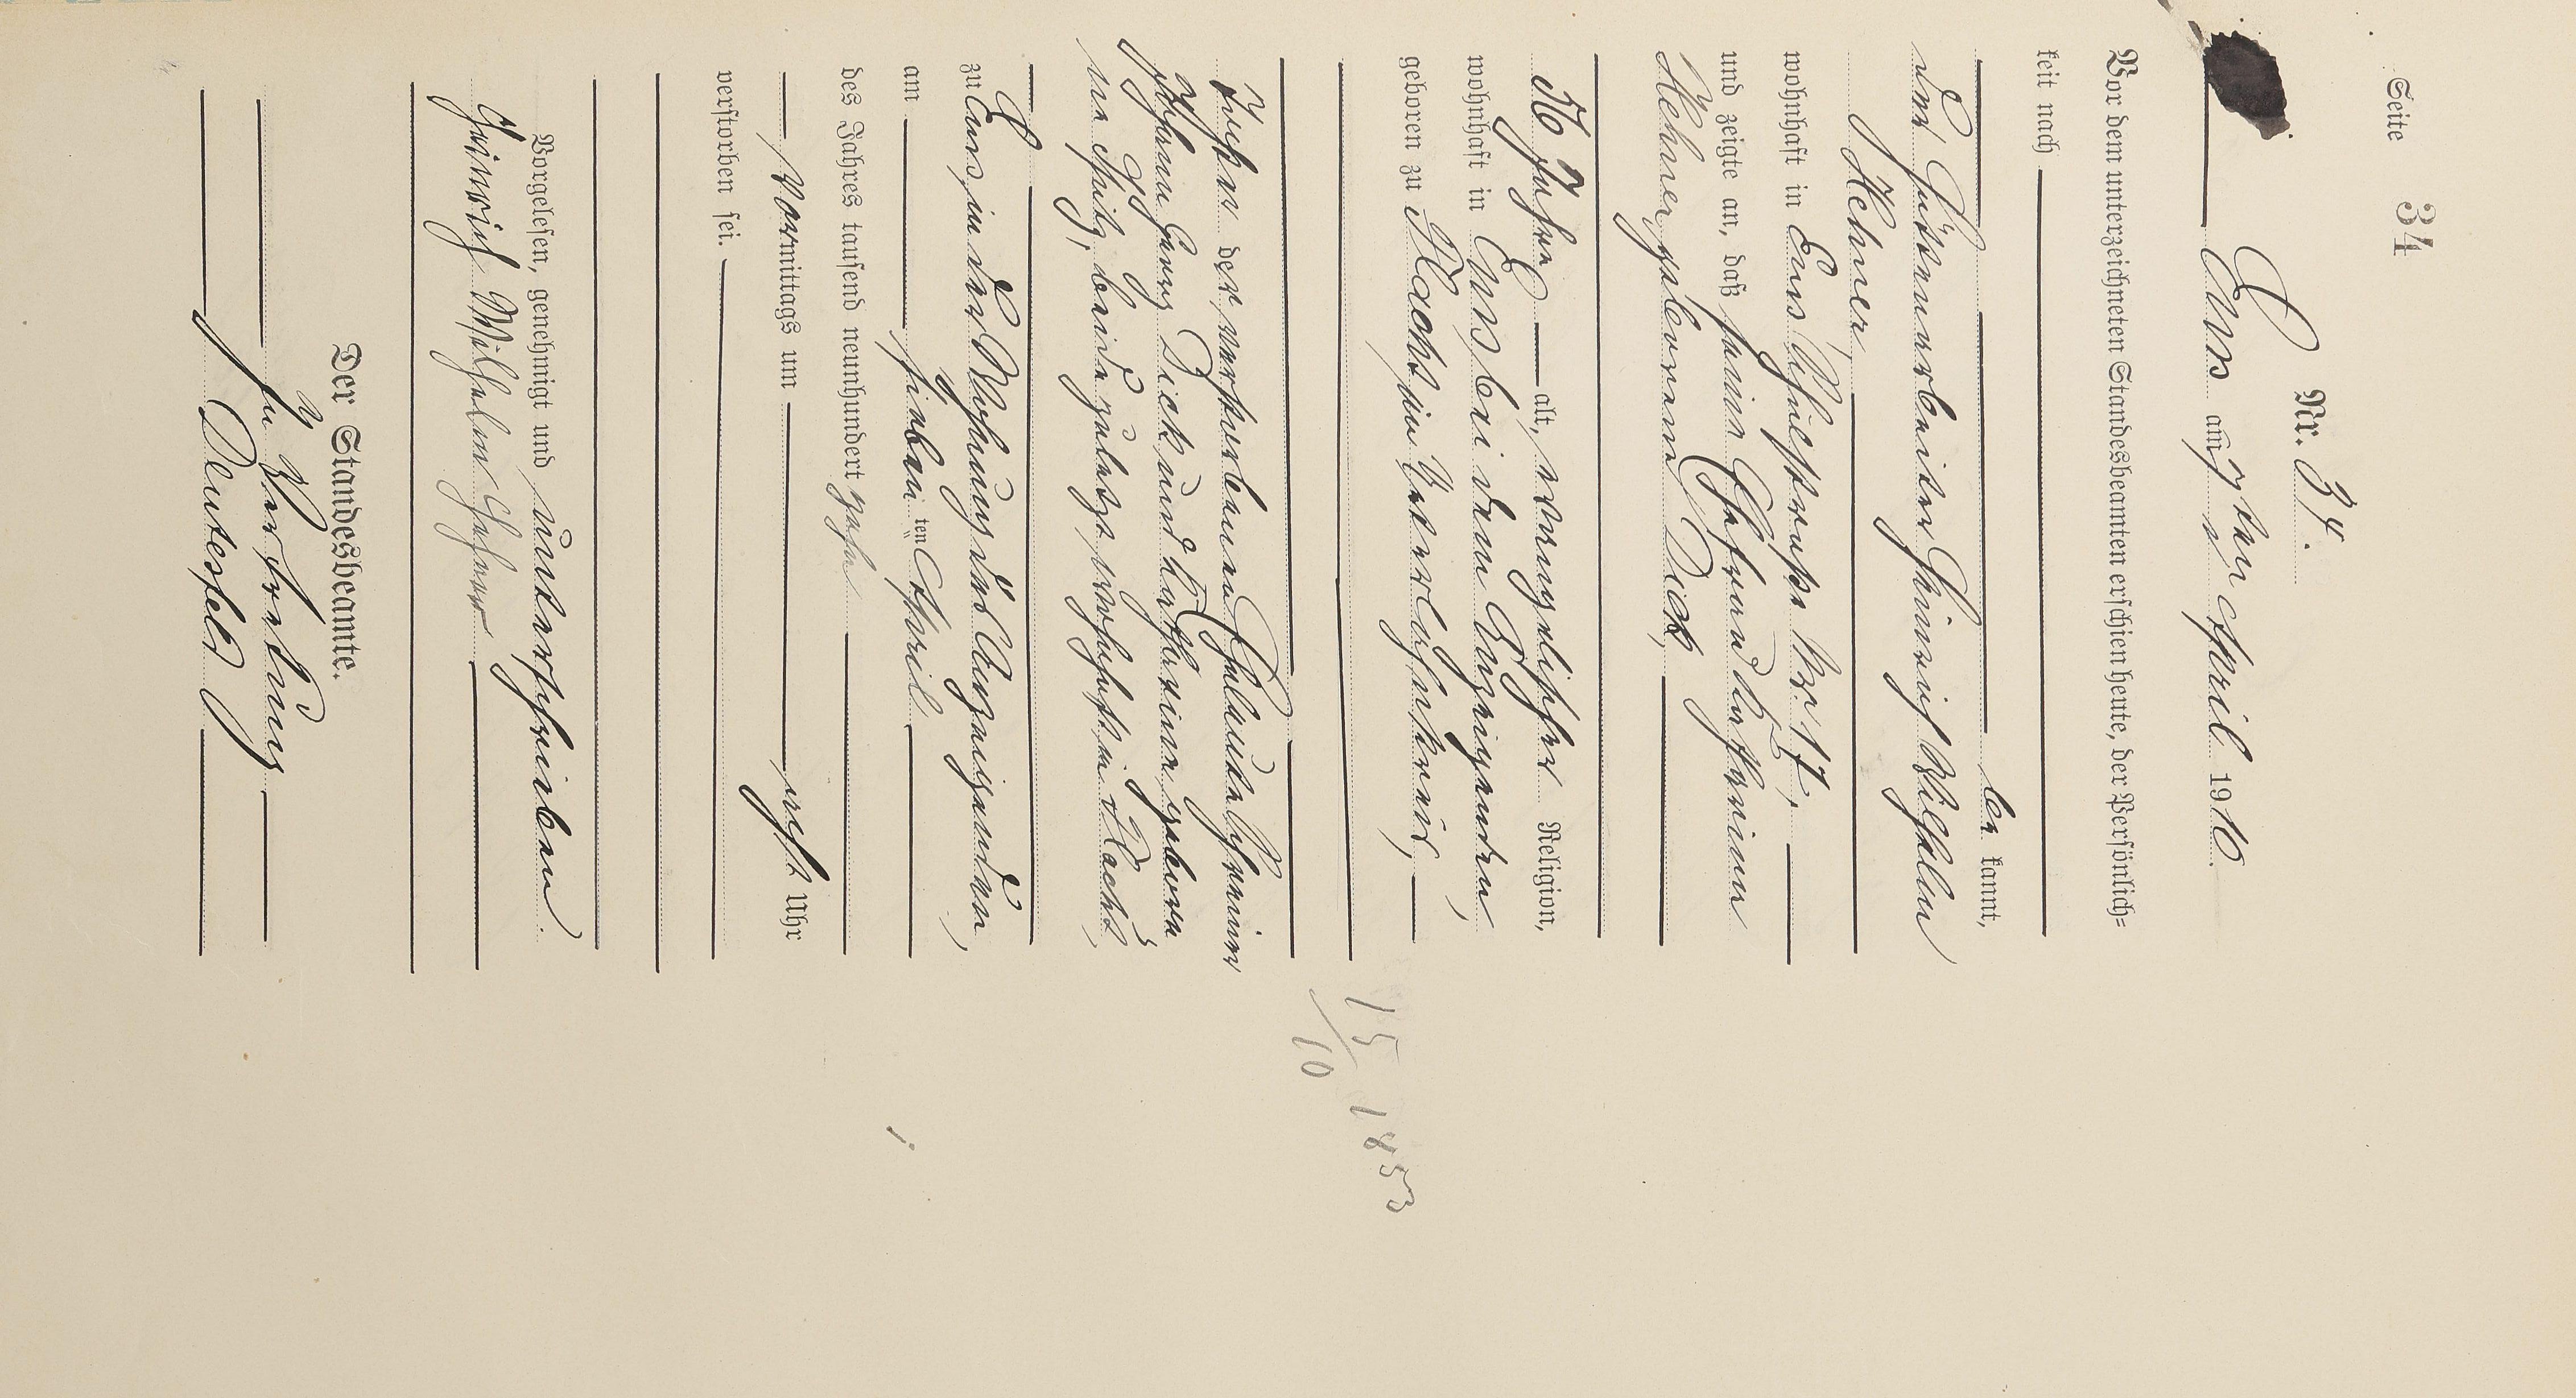 Seite 34
Nr. 34.
Ems am 7ten April 1910.
Vor dem unterzeichneten Standesbeamten erschien heute, der Persönlich=
keit nach
be kannt,
der Hüttenarbeiter Heinrich Wilhelm
Hehner,
wohnhaft in Ems Schulstraße Nr. 17,
und zeigte an, daß seine Ehefrau Kathrine
Hehner geborene Dick,
56 Jahre alt, evangelischer Religion,
wohnhaft in Ems bei dem Anzeigenden,
geboren zu Flacht im Unterlahnkreis,
15/10 1853
Tochter der verstorbenen Eheleute Schreiner
Johann Georg Dick und Kathrine gebore
ne beide zuletzt wohnhaft in Flacht,
zu Ems, in der Wohnung des Anzeigenden,
am sieben ten April
des Jahres tausend neunhundert zehn
Vormittags um acht Uhr
verstorben sei.
Vorgelesen, genehmigt und unterschrieben.
Heinrich Wilhelm Hehner
Der Standesbeamte.
In Vertretung
Deutesfeld